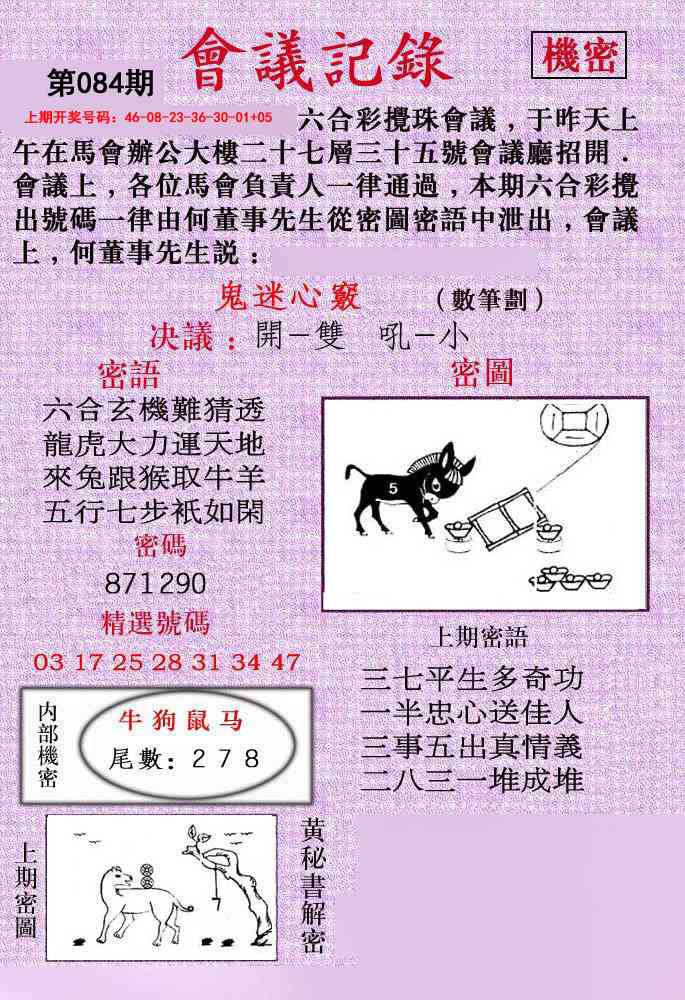 會議記錄
機密
第084期
上期开奖号码：46-08-23-36-30-01+05
六合彩攪珠會議，于昨天上
午在馬會辦公大樓二十七層三十五號會議廳招開．
會議上，各位馬會負責人一律通過，本期六合彩攪
出號碼一律由何董事先生從密圖密語中泄出，會議
上，何董事先生説：
鬼迷心竅 （數筆劃）
决議：開－雙 吼－小
密語
六合玄機難猜透
龍虎大力運天地
來兔跟猴取牛羊
五行七步衹如閑
密碼
871290
精選號碼
03 17 25 28 31 34 47
密圖
5
上期密語
三七平生多奇功
一半忠心送佳人
三事五出真情義
二八三一堆成堆
内部機密
牛狗鼠马
尾數：2 7 8
上期密圖
7
黄秘書解密